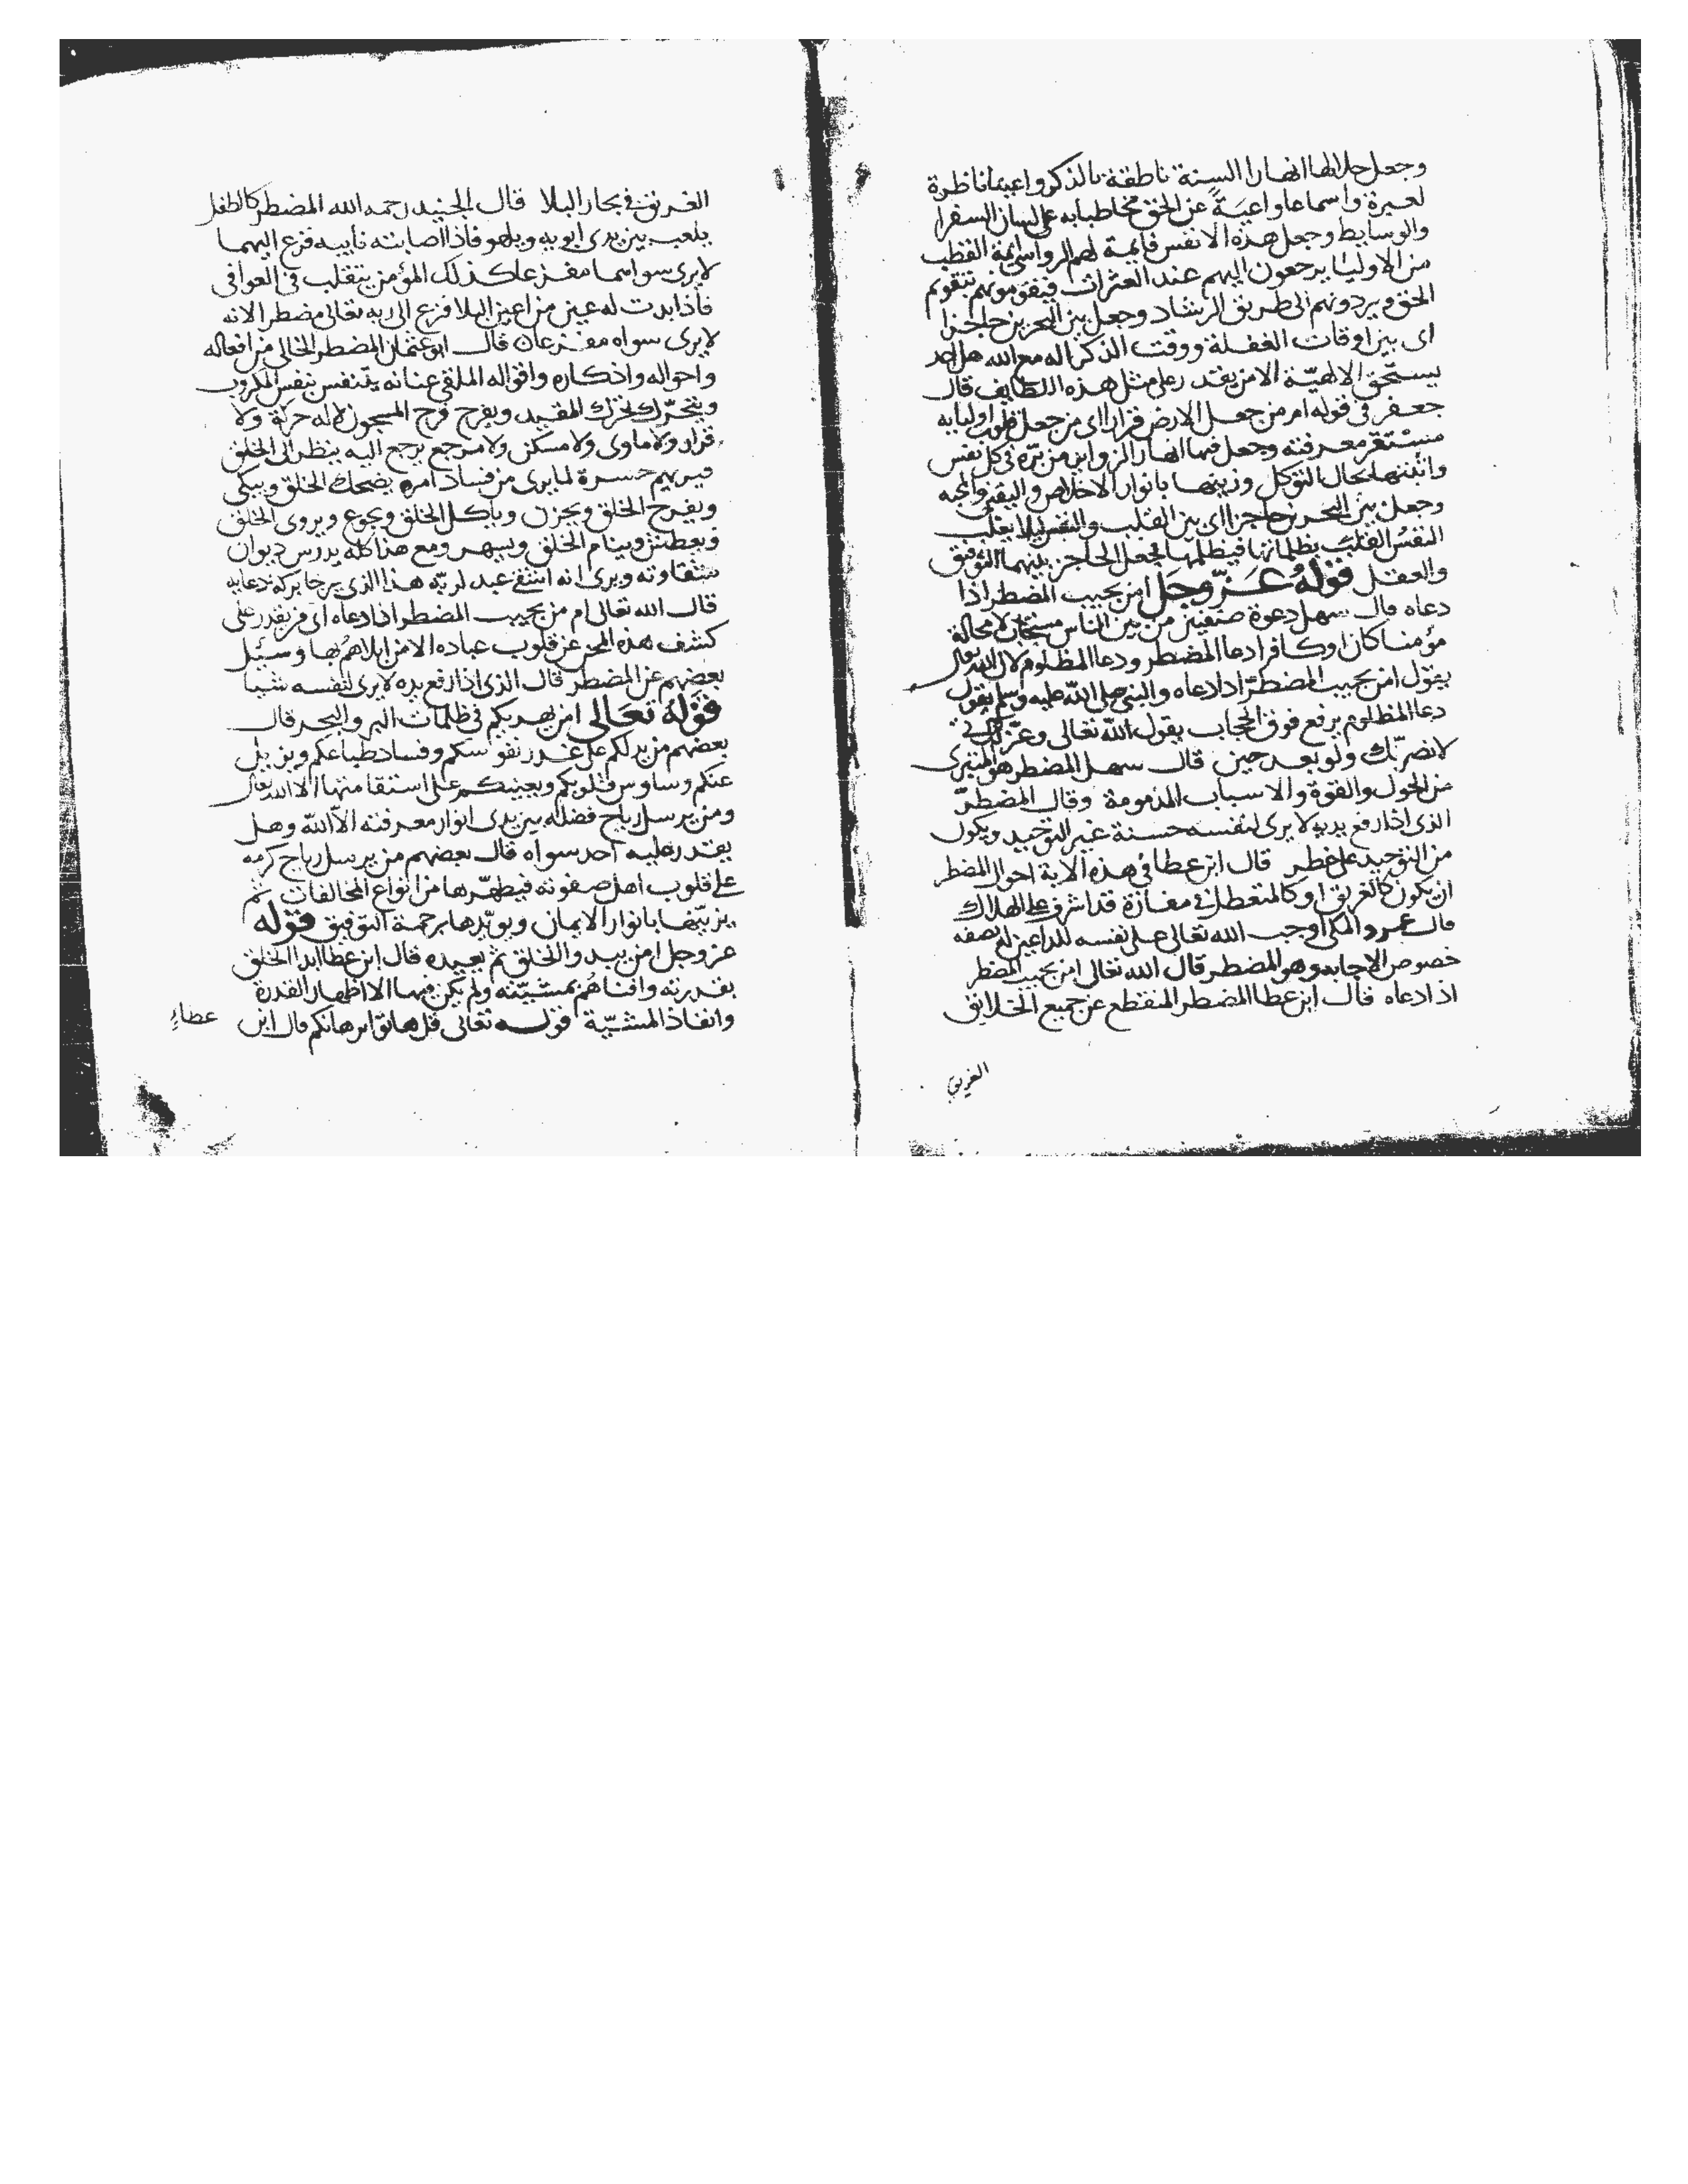 وجعل خلالها انهارا السنة ناطقة بالذكر واعينا ناظرة
لعبرة واسماعا واعية عن الحق مخاطباته على لسان السفرا
والوسايط وجعل هذه الانفس قايمة لهم الرواسي ايمة القطب
من الاوليا يرجعون اليهم عند العثرات فيقومونهم بتقويم
الحق ويردونهم الى طريق الرشاد وجعل بين البحرين حاجزا
اى بين اوقات الغفلة ووقت الذكر اله مع الله هل احد
يستحق الالهيّة الا من يقدر على مثل هذه اللطايف قال
جعفر فى قوله امر من جعل الارض قرارا اى من جعل قلوب اوليايه
مستقر معرفته وجعل فيها انهار الزوايد من برّه فى كل نفس
واثبتها بحال التوكل وزينها بانوار الاخلاص واليقين والمحبه
وجعل بين البحرين حاجزا اى بين القلب والنفس ليلا يغلب
النفس القلب بظلماتها فيظلمها فجعل الحاجز بينهما التوفيق
والعقل قوله عزّ وجل امن يجيب المضطر اذا
دعاه قال سهل دعوة صنفين من بين الناس مستجاب لا محالة
مؤمنا كان او كافرا دعا المضطر ودعا المظلوم لان الله تعالى
يقول امن يجيب المضطرّ اذا دعاه والنبي صلى الله عليه وسلم يقول
دعا المظلوم يرفع فوق الحجاب يقول الله تعالى وعزتى
لانصرنّك ولو بعد حين قال سهل المضطر هو المتبرى
من الحول والقوة والاسباب المذمومة وقال المضطرّ
الذى اذا رفع يديه لا يرى لنفسه حسنة غير التوحيد ويكون
من التوحيد على خطر قال ابن عطا فى هذه الاية احوال المضطر
ان يكون كالغريق او كالمتعطل فى مفازة قد اشرف على الهلاك
قال عمرو المكى اوجب الله تعالى على نفسه للداعين له بصفه
خصوص الاجابه وهو المضطر قال الله تعالى امن يجيب المضطر
اذا دعاه قال ابن عطا المضطر المنقطع عن جميع الخلايق
الغريق
الغريق فى بحار البلا قال الجنيد رحمه الله المضطر كالطفل
يلعب بين يدى ابويه ويلهو فاذا اصابته نايبه فزع اليهما
لا يرى سواهما مفزعا كذلك المؤمن يتقلب فى العوافى
فاذا بدت له عين من اعين البلا فزع الى ربه تعالى مضطرا لانه
لا يرى سواه مفزعا قال ابو عثمان المضطر الخالى من افعاله
واحواله واذكاره واقواله الملقى عنانه يتنفس بنفس المكروب
ويتحرّك تحرك المقيد ويفرح فرح المسجون لا له حركة ولا
قرار ولا ماوى ولا مسكن ولا مرجع يرجع اليه ينظر الى الخلق
فيريهم حسرة لما يرى من فساد امره يضحك الخلق ويبكى
ويفرح الخلق ويحزن وياكل الخلق ويجوع ويروى الخلق
ويعطش وينام الخلق ويسهر ومع هذا كله يدرس ديوان
شقاوته ويرى انه اشقى عبد لربّه هذا الذى يرجا بركة دعايه
قال الله تعالى ام من يجيب المضطر اذا دعاه اى من يقدر على
كشف هذه المحن عن قلوب عباده الا من ابلاهم بها وسئل
بعضهم عن المضطر قال الذى اذا رفع يده لا يرى لنفسه شيا
قوله تعالى امن يهديكم فى ظلمات البر والبحر قال
بعضهم من يدلكم على غدر نفوسكم وفساد طباعكم ويزيل
عنكم وساوس قلوبكم ويعينكم على استقامتها الا الله تعالى
ومن يرسل رياح فضله بين يدى انوار معرفته الا الله وهل
يقدر عليه احد سواه قال بعضهم من يرسل رياح كرمه
على قلوب اهل صفوته فيطهّرها من انواع المخالفات ثم
يزيّنها بانوار الايمان ويويّدها برحمة التوفيق قوله
عز وجل امن يبدو الخلق ثم يعيده قال ابن عطا ابدا الخلق
بقدرته وافناهم بمشيّته ولم يكن فيها الا اظهار القدرة
وانفاذ المشيّة قوله تعالى قل هاتوا برهانكم قال ابن
عطاء